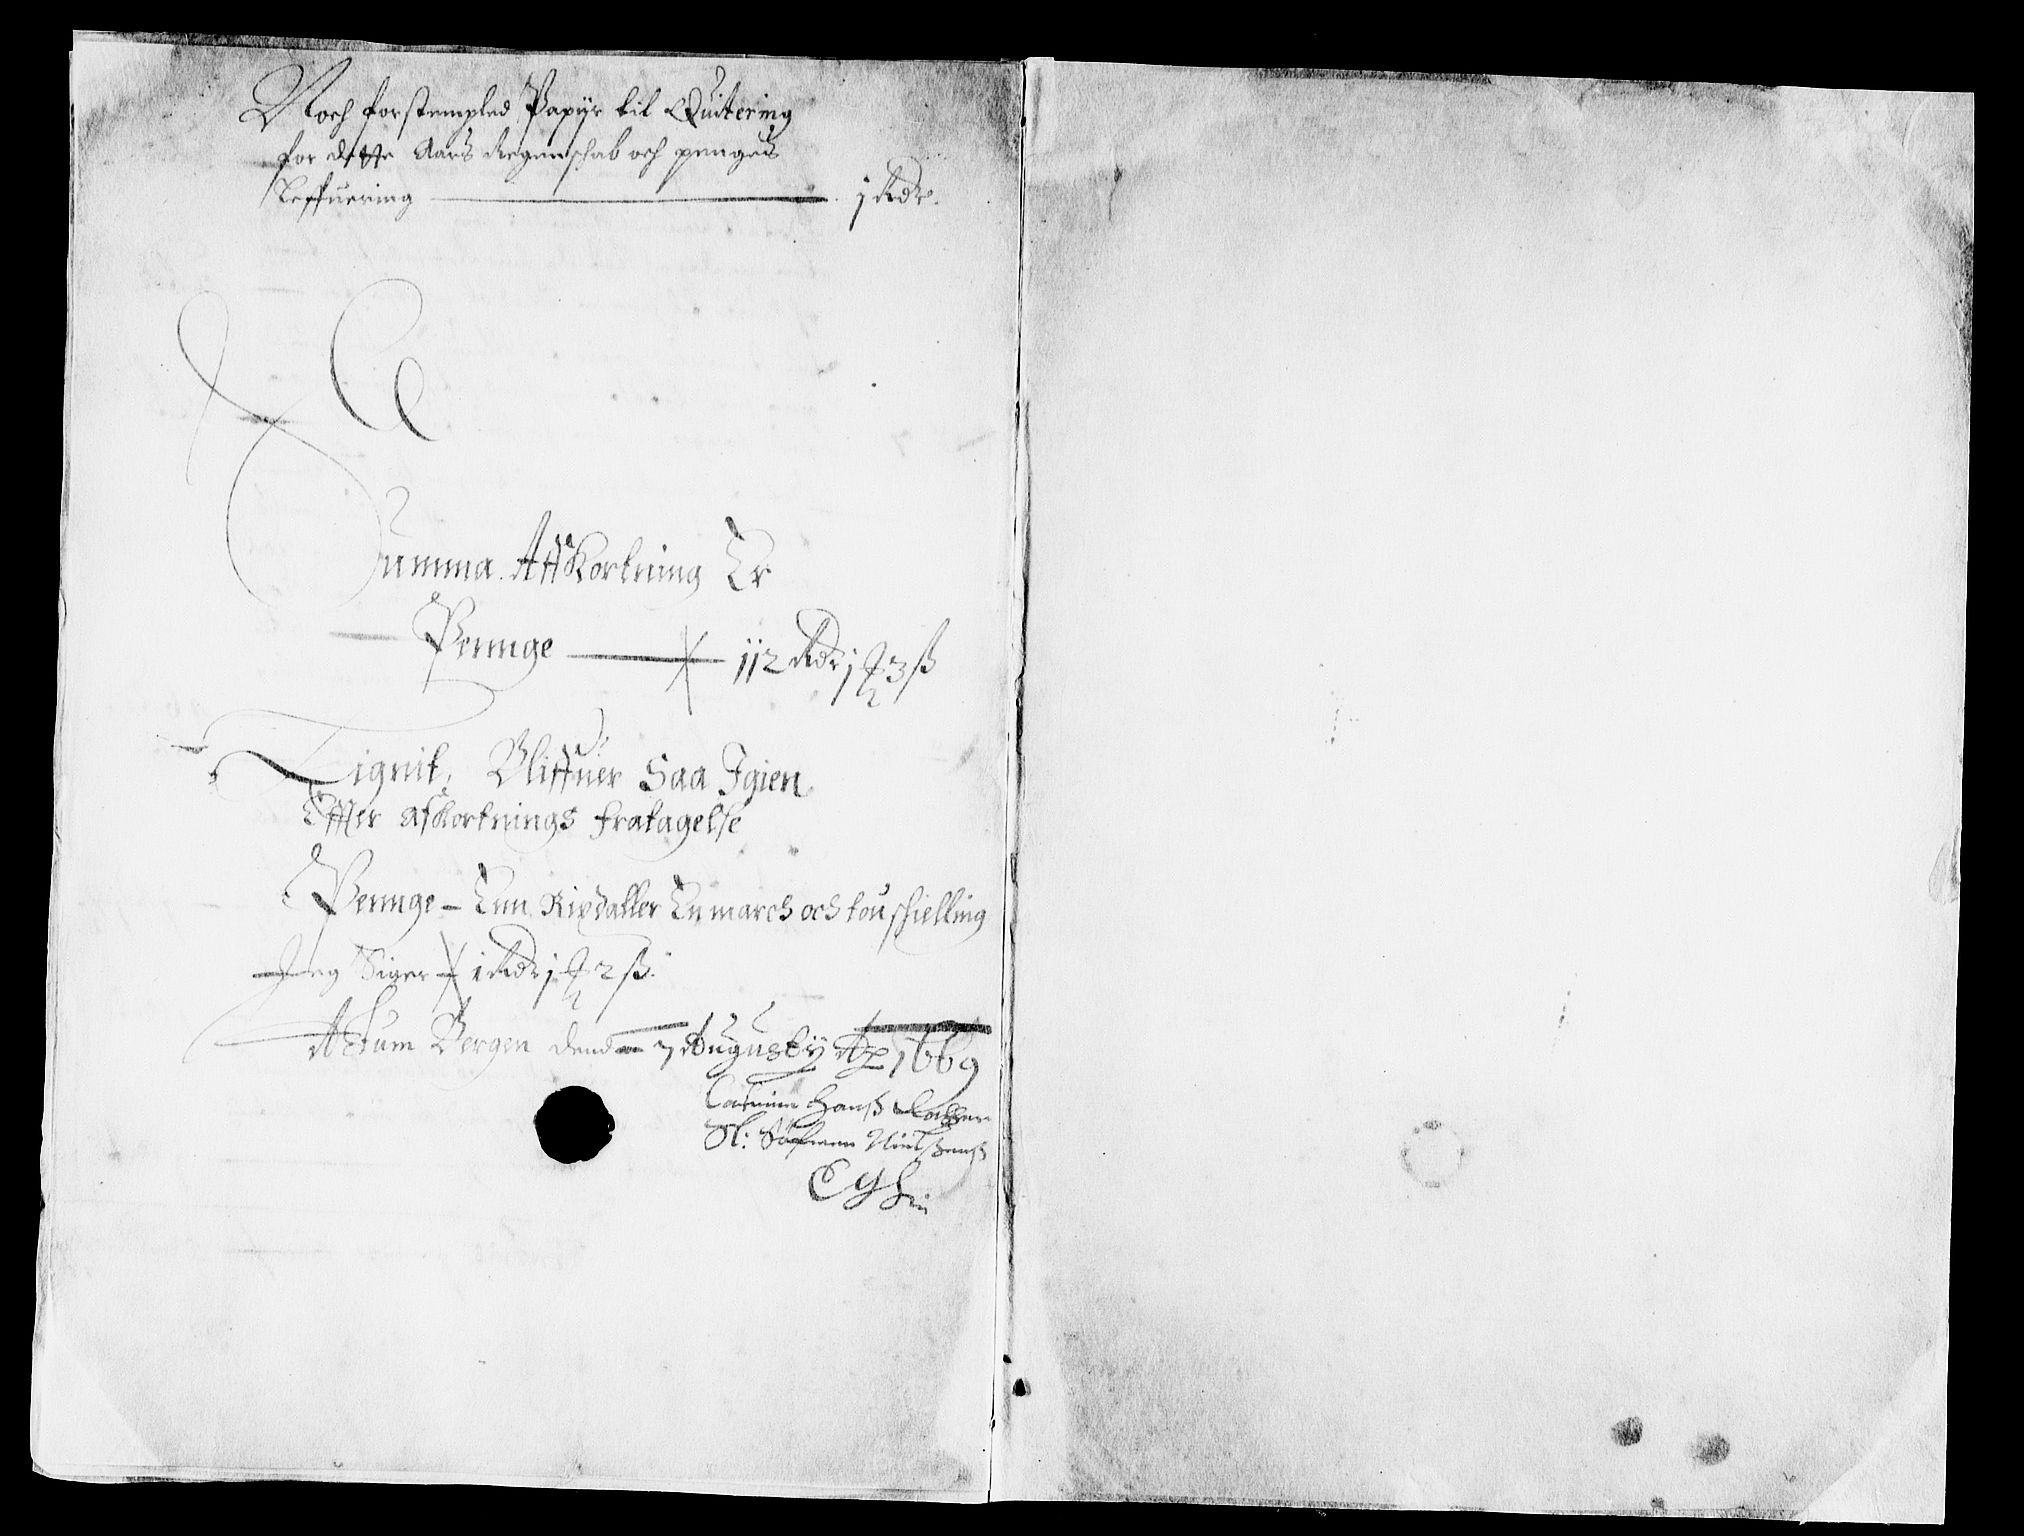 Noch forstempled Papijr til Quitering
for dette Aars Regenschab och penges
Leffuering — 1 Rdr.
Summa Affkortning Er
Penge — 112 Rdr 1 ℳ 3 ß
Lignit, Bliffuer Saa Igien
Effter afkortnings fratagelse
Penge – Enn Rixdaller En march och tou schielling
Jeg Siger – 1 Rdr 1 ℳ 2 ß.
Actum Bergen dend 7 Augustij Ao 1669
Catrine Hanß
Sl: Nielßens